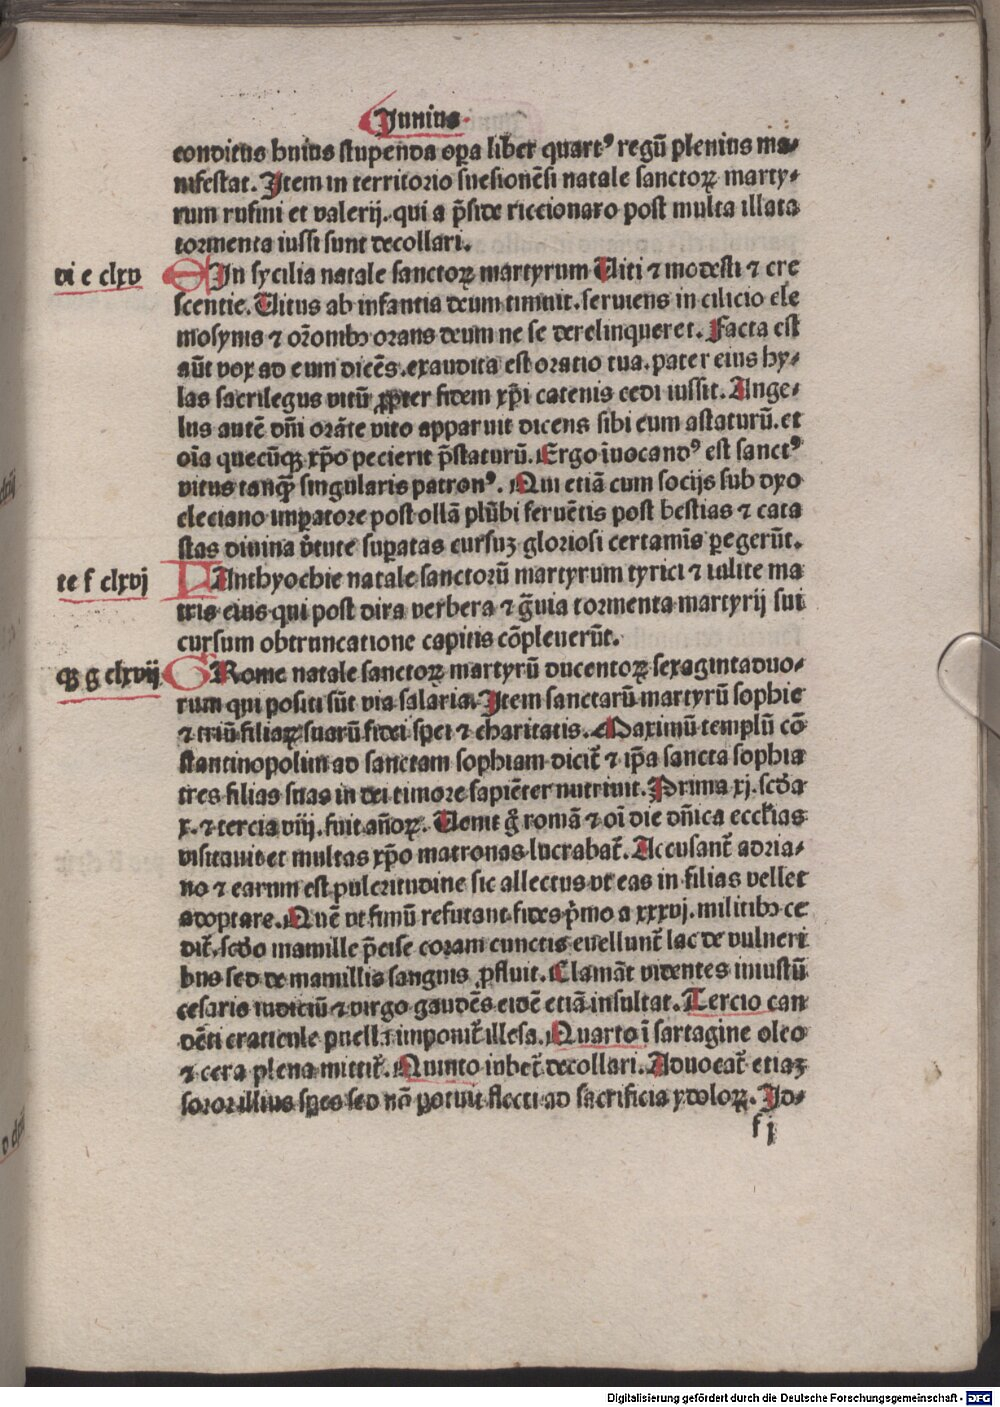 Junius
conditus huius stupenda oꝑa liber quartꝰ regū plenius ma⸗
nifestat. Item in territorio suesionēsi natale sanctoꝝ marty⸗
rum rufini et valerij. qui a p̄side riccionaro post multa illata
tormenta iussi sunt decollari.
vi e clxv
In sycilia natale sanctoꝝ martyrum Uiti ⁊ modesti ⁊ cre
scentie. Uitus ab infantia deum timuit. seruiens in cilicio ele
mosynis ⁊ or̄onibꝫ orans deum ne se derelinqueret. Facta est
aūt vox ad eum dicēs. exaudita est oratio tua. pater eius hy⸗
las sacrilegus vitū ꝓpter fidem xp̄i catenis cedi iussit. Ange⸗
lus autē dn̄i orāte vito apparuit dicens sibi eum astaturū. et
oīa quecūqꝫ xp̄o pecierit p̄staturū. Ergo īuocandꝰ est sanctꝰ
vitus tanqȝ singularis patronꝰ. Qui etiā cum socijs sub dyo
cleciano imꝑatore post ollā plūbi feruētis post bestias ⁊ cata
stas diuina v̓tute suꝑatas cursuȝ gloriosi certamīs ꝑegerūt.
te f clxvj
Anthyochie natale sanctorū martyrum tyrici ⁊ iulite ma
tris eius qui post dira verbera ⁊ g̓uia tormenta martyrij sui
cursum obtruncatione capitis cōpleuerūt.
qȝ g clxvij
Rome natale sanctoꝝ martyrū ducentoꝝ sexagintaduo⸗
rum qui positi sūt via salaria. Item sanctarū martyrū sophie
⁊ triū filiaꝝ suarū fidei spei ⁊ charitatis. Maximū templū cō
stantinopolim ad sanctam sophiam dicit̄ ⁊ ip̄a sancta sophia
tres filias suas in dei timore sapiēter nutriuit. Prima xj. scd̄a
x. ⁊ tercia viij. fuit añoꝝ. Uenit g̓ romā ⁊ oī die dn̄ica eccl̄ias
visitauit et multas xp̄o matronas lucrabat̄. Accusant̄ adria⸗
no ⁊ earum est pulcritudine sic allectus vt eas in filias vellet
adoptare. Quē vt fimū refutant fides p̓mo a xxxvj. militibꝫ ce
dit̄. scd̄o mamille p̄cise coram cunctis euellunt̄ lac de vulneri
bus sed de mamillis sanguis ꝓfluit. Clamāt videntes iniustū
cesaris iudiciū ⁊ virgo gaudēs eidē etiā insultat. Tercio can
dēti craticule puella imponit̄ illesa. Quarto ī sartagine oleo
⁊ cera plena mittit̄. Quinto iubet̄ decollari. Aduocat̄ etiaȝ
soror illius spes sed nō potuit flecti ad sacrificia ydoloꝝ. Id⸗
f j
Digitalisierung gefördert durch die Deutsche Forschungsgemeinschaft - DFG